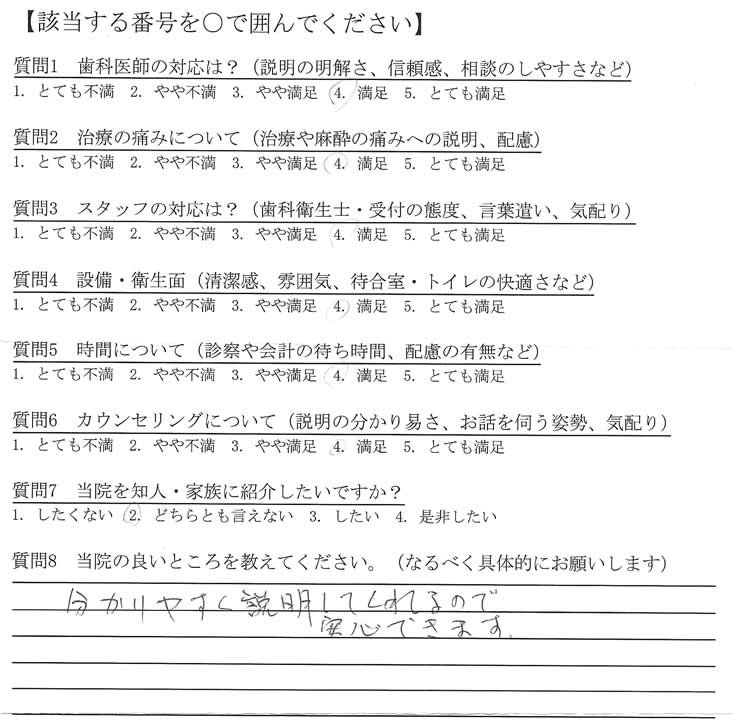 【該当する番号を○で囲んでください】
質問1 歯科医師の対応は？（説明の明解さ、信頼感、相談のしやすさなど）
1. とても不満 2. やや不満 3. やや満足 4. 満足 5. とても満足
質問2 治療の痛みについて（治療や麻酔の痛みへの説明、配慮）
1. とても不満 2. やや不満 3. やや満足 4. 満足 5. とても満足
質問3 スタッフの対応は？（歯科衛生士・受付の態度、言葉遣い、気配り）
1. とても不満 2. やや不満 3. やや満足 4. 満足 5. とても満足
質問4 設備・衛生面（清潔感、雰囲気、待合室・トイレの快適さなど）
1. とても不満 2. やや不満 3. やや満足 4. 満足 5. とても満足
質問5 時間について（診察や会計の待ち時間、配慮の有無など）
1. とても不満 2. やや不満 3. やや満足 4. 満足 5. とても満足
質問6 カウンセリングについて（説明の分かり易さ、お話を伺う姿勢、気配り）
1. とても不満 2. やや不満 3. やや満足 4. 満足 5. とても満足
質問7 当院を知人・家族に紹介したいですか？
1. したくない 2. どちらとも言えない 3. したい 4. 是非したい
質問8 当院の良いところを教えてください。（なるべく具体的にお願いします）
分かりやすく説明してくれるので
安心できます.